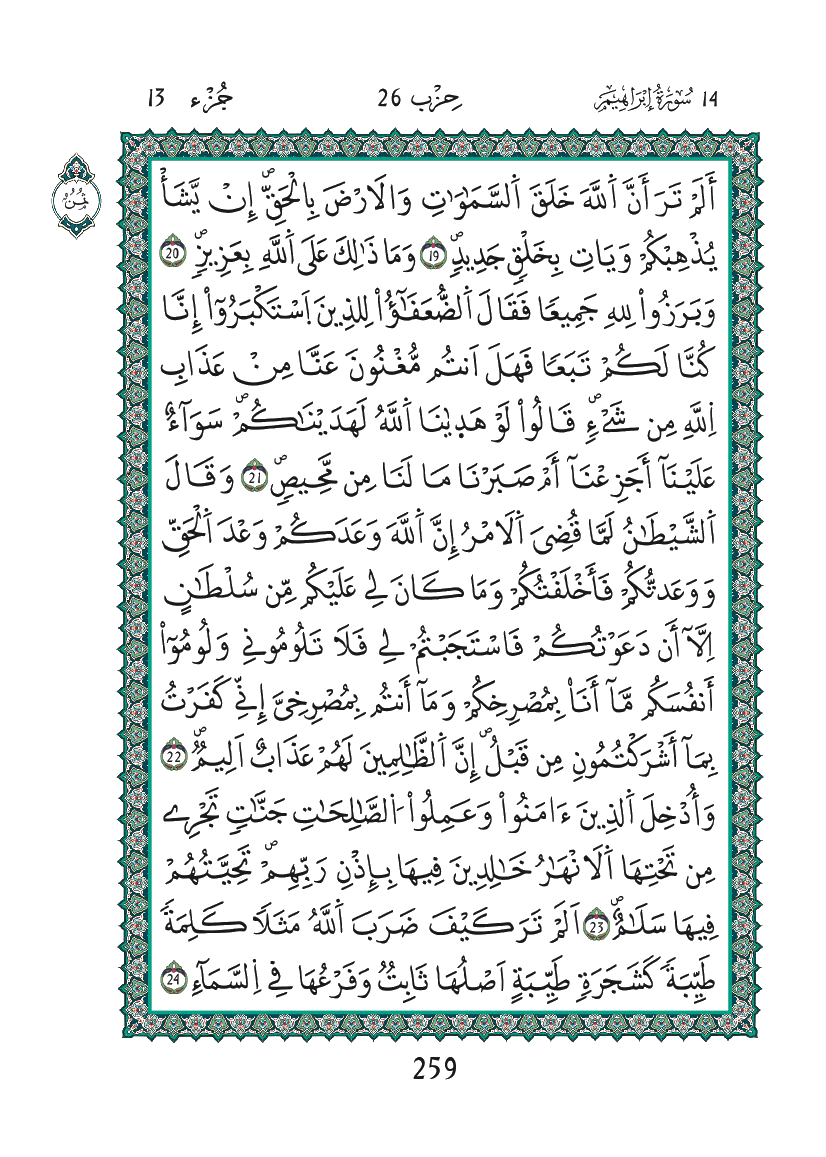 14 سُورَةُ إِبْرَاهِيمَ حِزْب 26 جُزْء 13
ثُمُن
أَلَمْ تَرَ أَنَّ اَ۬للَّهَ خَلَقَ اَ۬لسَّمَٰوَٰتِ وَالَارْضَ بِالْحَقِّۖ إِنْ يَّشَأْ
يُذْهِبْكُمْ وَيَاتِ بِخَلْقٖ جَدِيدٖۖ 19 وَمَا ذَٰلِكَ عَلَى اَ۬للَّهِ بِعَزِيزٖۖ 20
وَبَرَزُواْ لِلهِ جَمِيعاٗ فَقَالَ اَ۬لضُّعَفَٰٓؤُاْ لِلذِينَ اَ۪سْتَكْبَرُوٓاْ إِنَّا
كُنَّا لَكُمْ تَبَعاٗ فَهَلَ اَنتُم مُّغْنُونَ عَنَّا مِنْ عَذَابِ
اِ۬للَّهِ مِن شَےْءٖۖ قَالُواْ لَوْ هَد۪يٰنَا اَ۬للَّهُ لَهَدَيْنَٰكُمْۖ سَوَآءٌ
عَلَيْنَآ أَجَزِعْنَآ أَمْ صَبَرْنَا مَا لَنَا مِن مَّحِيصٖۖ 21 وَقَالَ
اَ۬لشَّيْطَٰنُ لَمَّا قُضِيَ اَ۬لَامْرُ إِنَّ اَ۬للَّهَ وَعَدَكُمْ وَعْدَ اَ۬لْحَقِّ
وَوَعَدتُّكُمْ فَأَخْلَفْتُكُمْ وَمَا كَانَ لِے عَلَيْكُم مِّن سُلْطَٰنٍ
اِلَّآ أَن دَعَوْتُكُمْ فَاسْتَجَبْتُمْ لِے فَلَا تَلُومُونِے وَلُومُوٓاْ
أَنفُسَكُم مَّآ أَنَا۠ بِمُصْرِخِكُمْ وَمَآ أَنتُم بِمُصْرِخِيَّ إِنِّے كَفَرْتُ
بِمَآ أَشْرَكْتُمُونِ مِن قَبْلُۖ إِنَّ اَ۬لظَّٰلِمِينَ لَهُمْ عَذَابٌ اَلِيمٞۖ 22
وَأُدْخِلَ اَ۬لذِينَ ءَامَنُواْ وَعَمِلُواْ اُ۬لصَّٰلِحَٰتِ جَنَّٰتٖ تَجْرِے
مِن تَحْتِهَا اَ۬لَانْهَٰرُ خَٰلِدِينَ فِيهَا بِإِذْنِ رَبِّهِمْۖ تَحِيَّتُهُمْ
فِيهَا سَلَٰمٌۖ 23 اَلَمْ تَرَ كَيْفَ ضَرَبَ اَ۬للَّهُ مَثَلاٗ كَلِمَةٗ
طَيِّبَةٗ كَشَجَرَةٖ طَيِّبَةٍ اَصْلُهَا ثَابِتٞ وَفَرْعُهَا فِے اِ۬لسَّمَآءِ 24
259